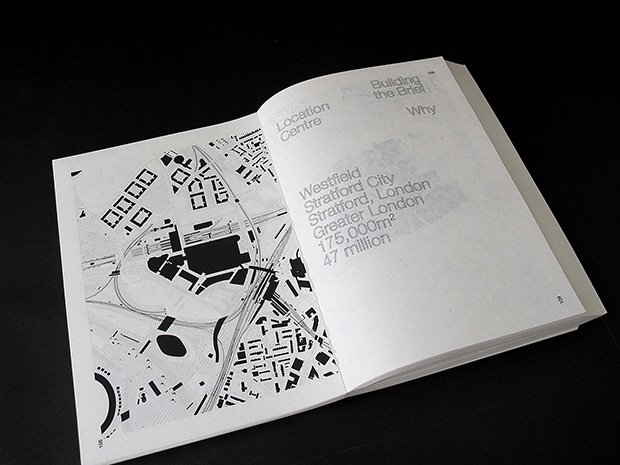 Building
the Brief
Location
Centre
Why
Westfield
Stratford City
Stratford, London
Greater London
175,000m²
47 million
108